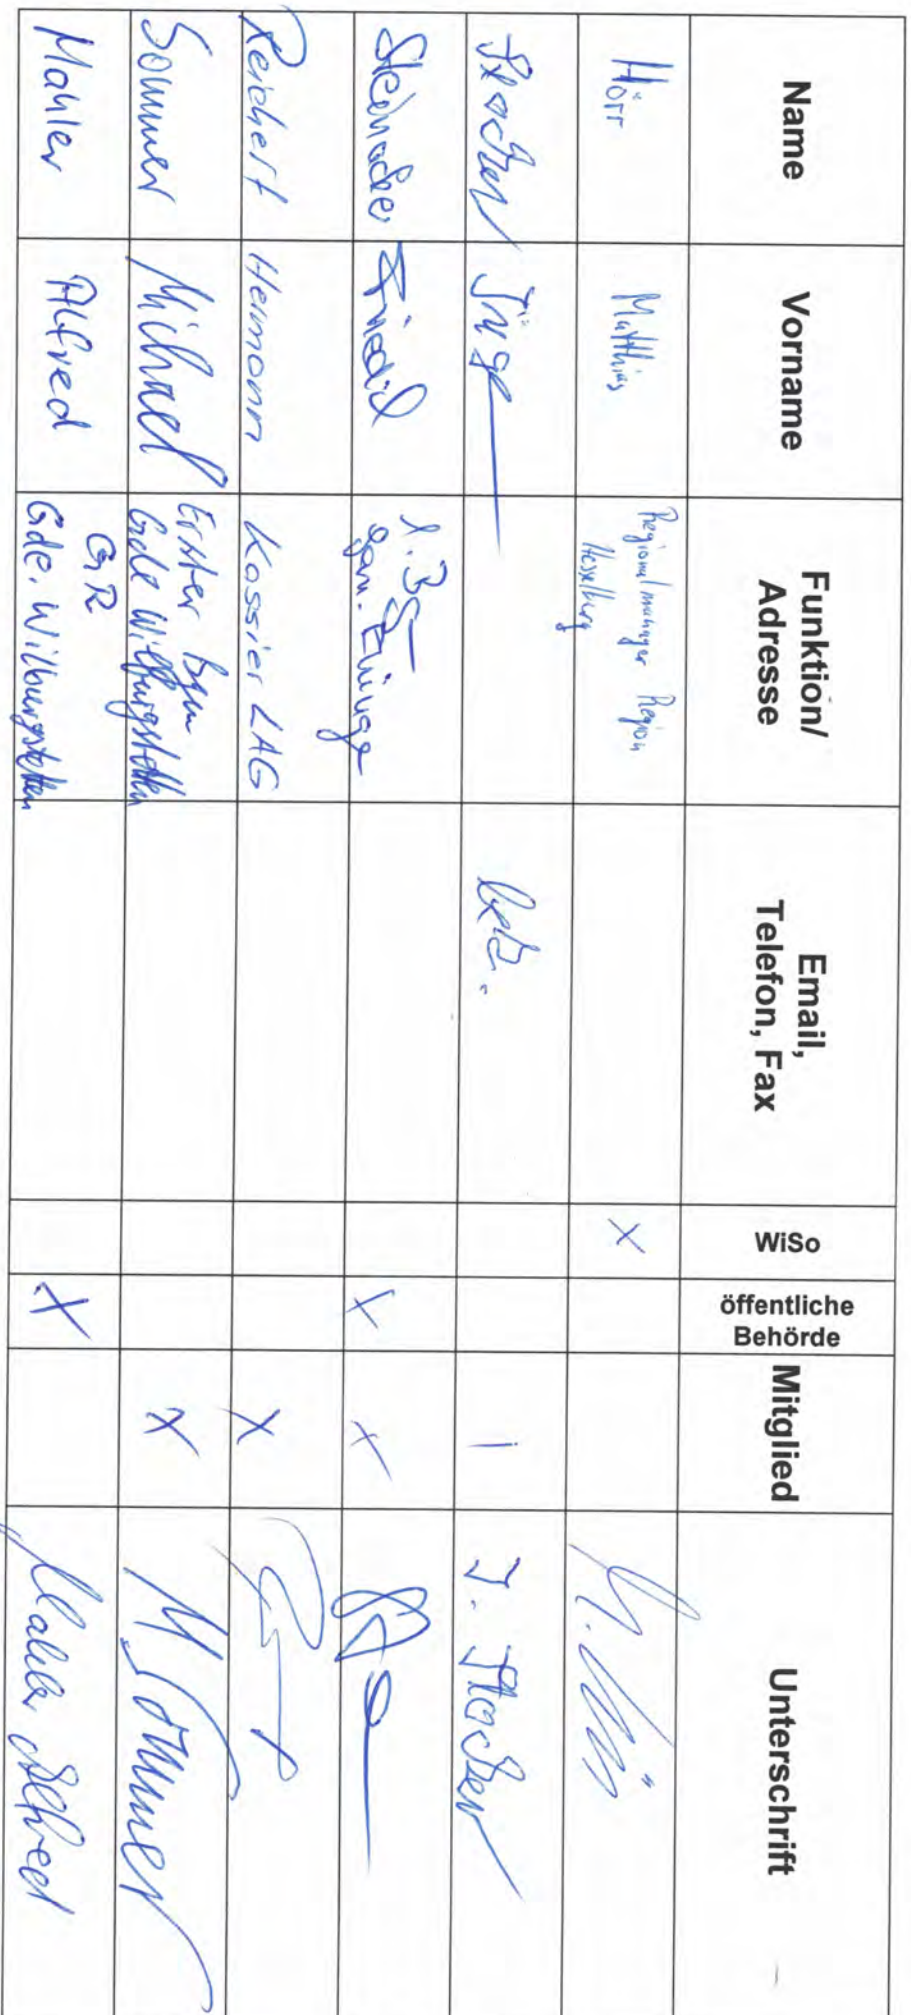 Name Vorname Funktion/ Adresse Email, Telefon, Fax WiSo öffentliche Behörde Mitglied Unterschrift
Hörr Matthias Regionalmanager Region Hesselberg X
bek. I J.
Friedrich 1. Bgm X X
Reichert Hermann Kassier LAG X
Sommer Michael Erster Bgm Gde Wilburgstetten X M. Sommer
Mahler Alfred GR Gde. Wilburgstetten X Mahler Alfred